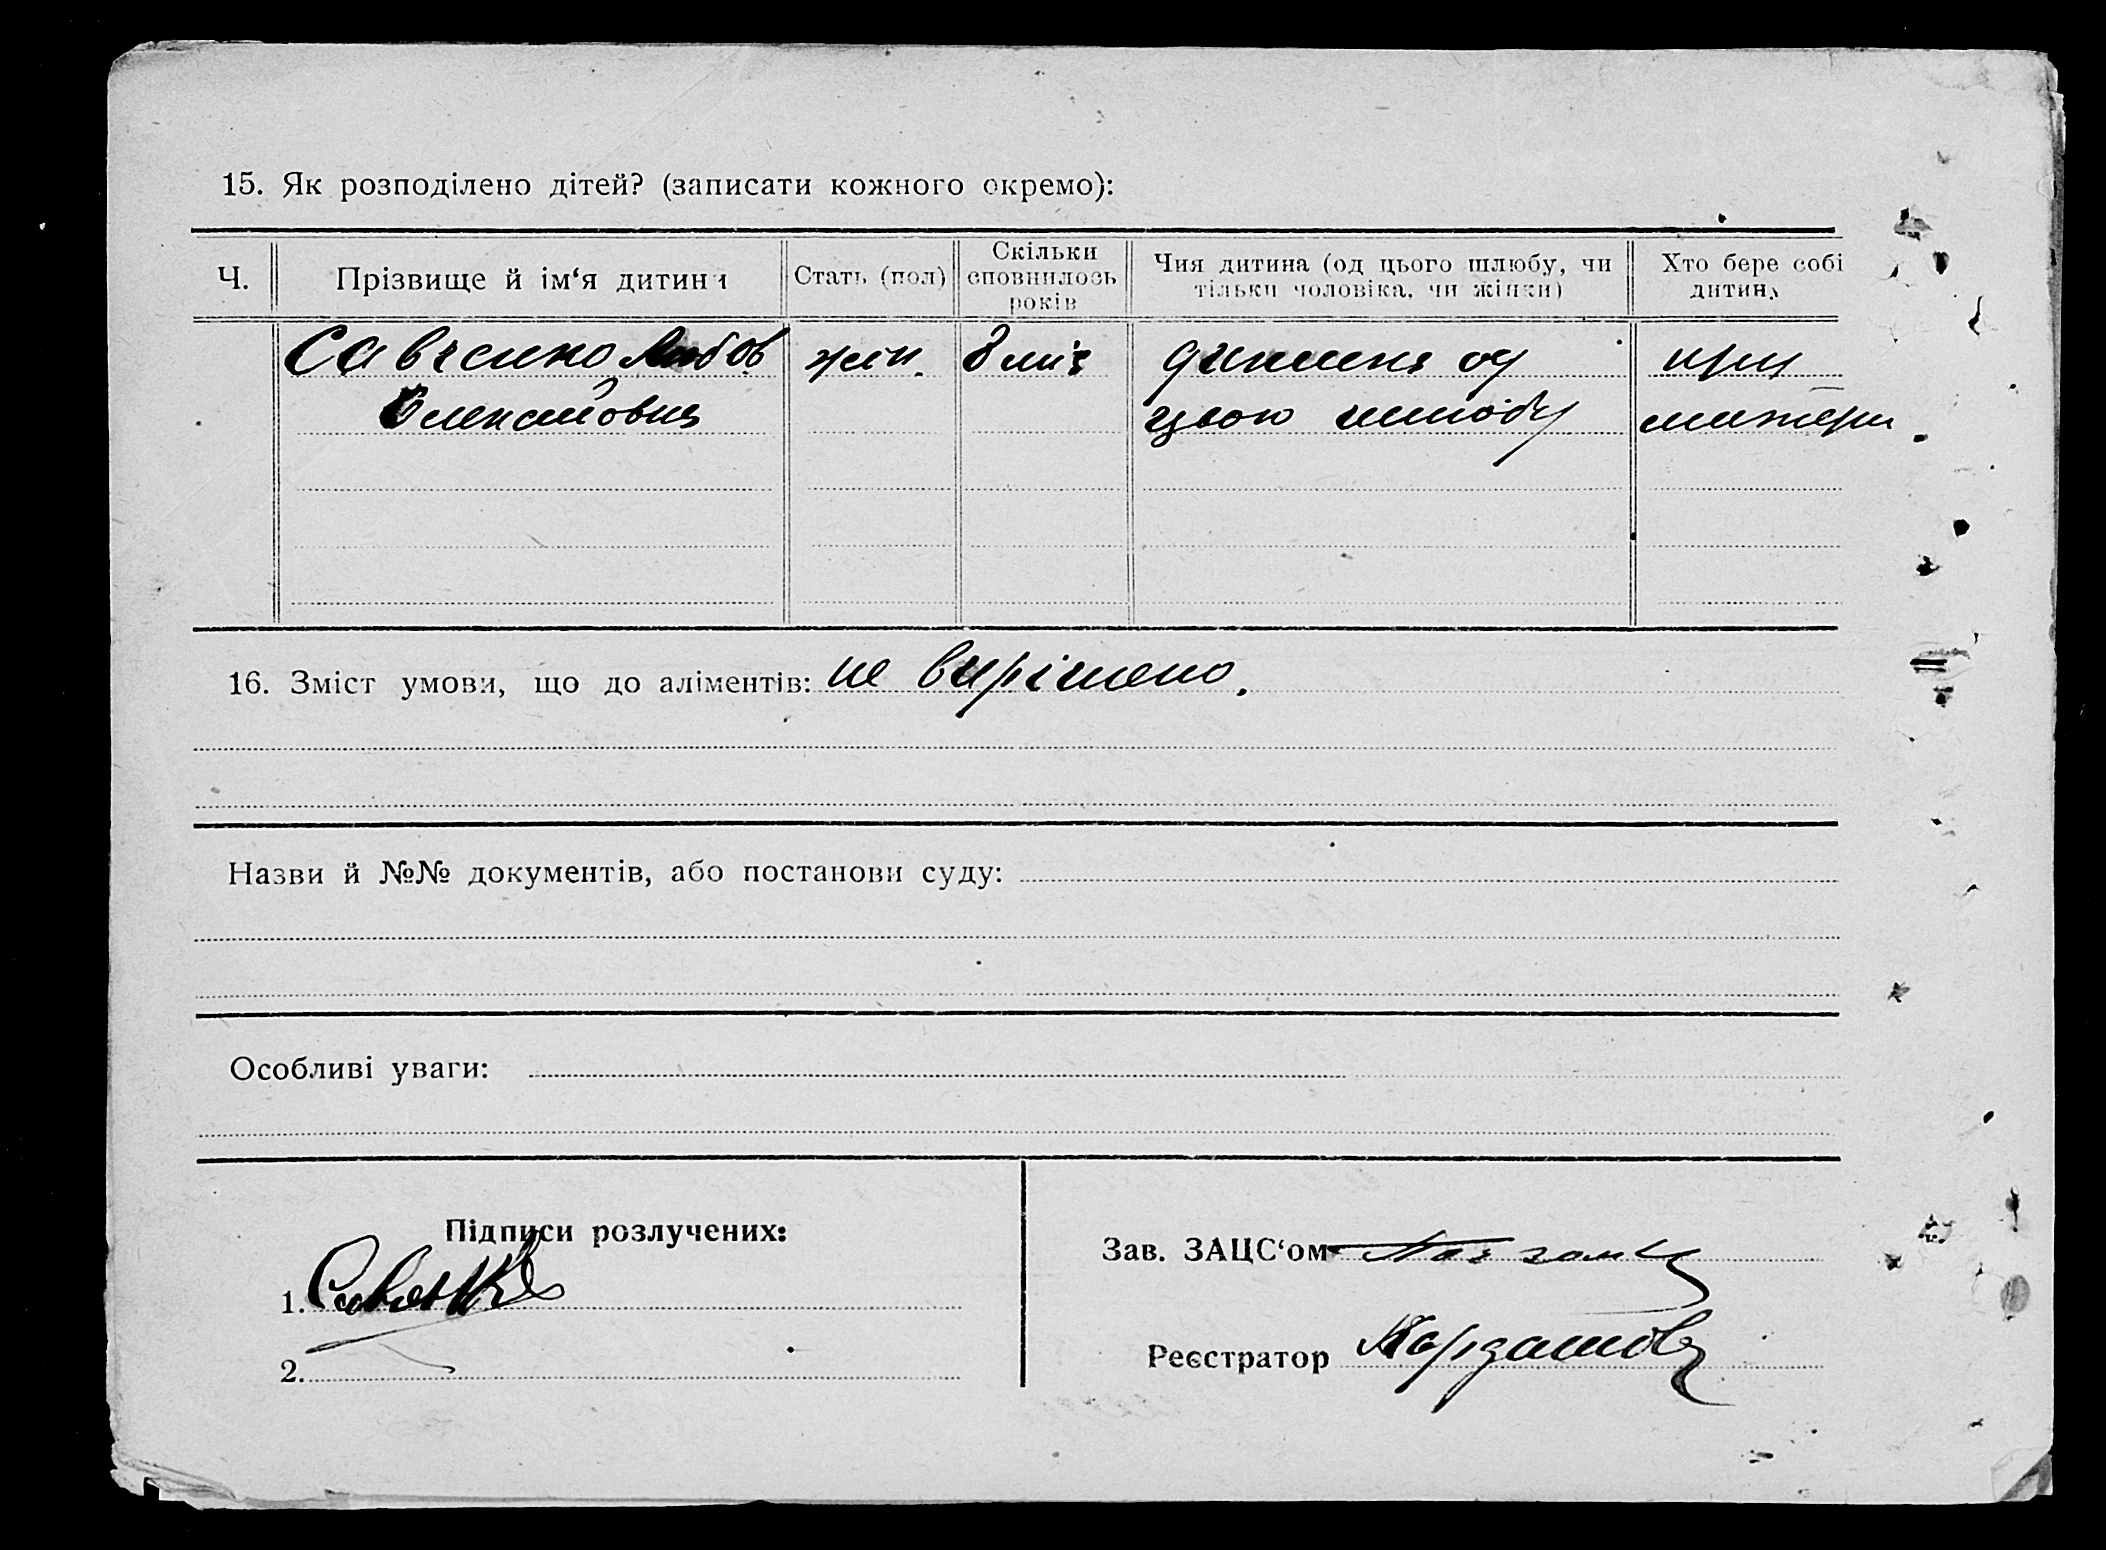 15. Як розподілено дітей? (записати кожного окремо):
Ч. Прізвище й ім‘я дитини Стать (пол) Скільки сповнилось років Чия дитина (од цього шлюбу, чи тільки чоловіка, чи жінки) Хто бере собі дитину
Савченко Любов жін. 8 міс дитина од при
цього шлюбу матери.
16. Зміст умови, що до аліментів: не вирішено.
Назви й №№ документів, або постанови суду:
Особливі уваги:
Підписи розлучених:
Зав. ЗАЦС‘ом
1.
Реєстратор Кардашова
2.